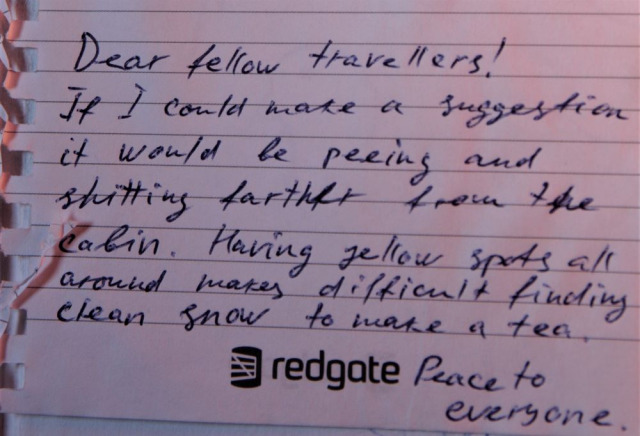 Dear fellow travellers!
If I could make a suggestion
it would be peeing and
shitting farther from the
cabin. Having yellow spots all
around makes difficult finding
clean snow to make a tea.
redgate Peace to
everyone.